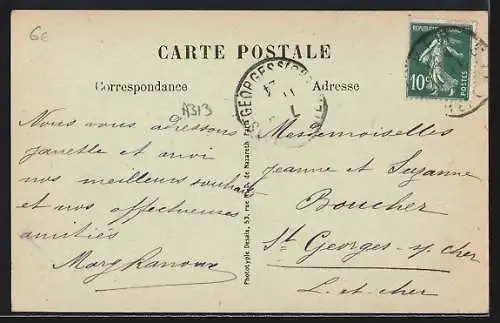 6e
CARTE POSTALE
Correspondance
Adresse
A313
Nous vous adressons
Janette et moi
nos meilleurs souhaits
et nos affectueuses
amitiés
Mary Ranoux
Mesdemoiselles
Jeanne et Suzanne
Boucher
St Georges s/ cher
L. et cher
Phototypie Desaix, 53, rue N.-D. de Nazareth
ST GEORGES S
10c
POSTES